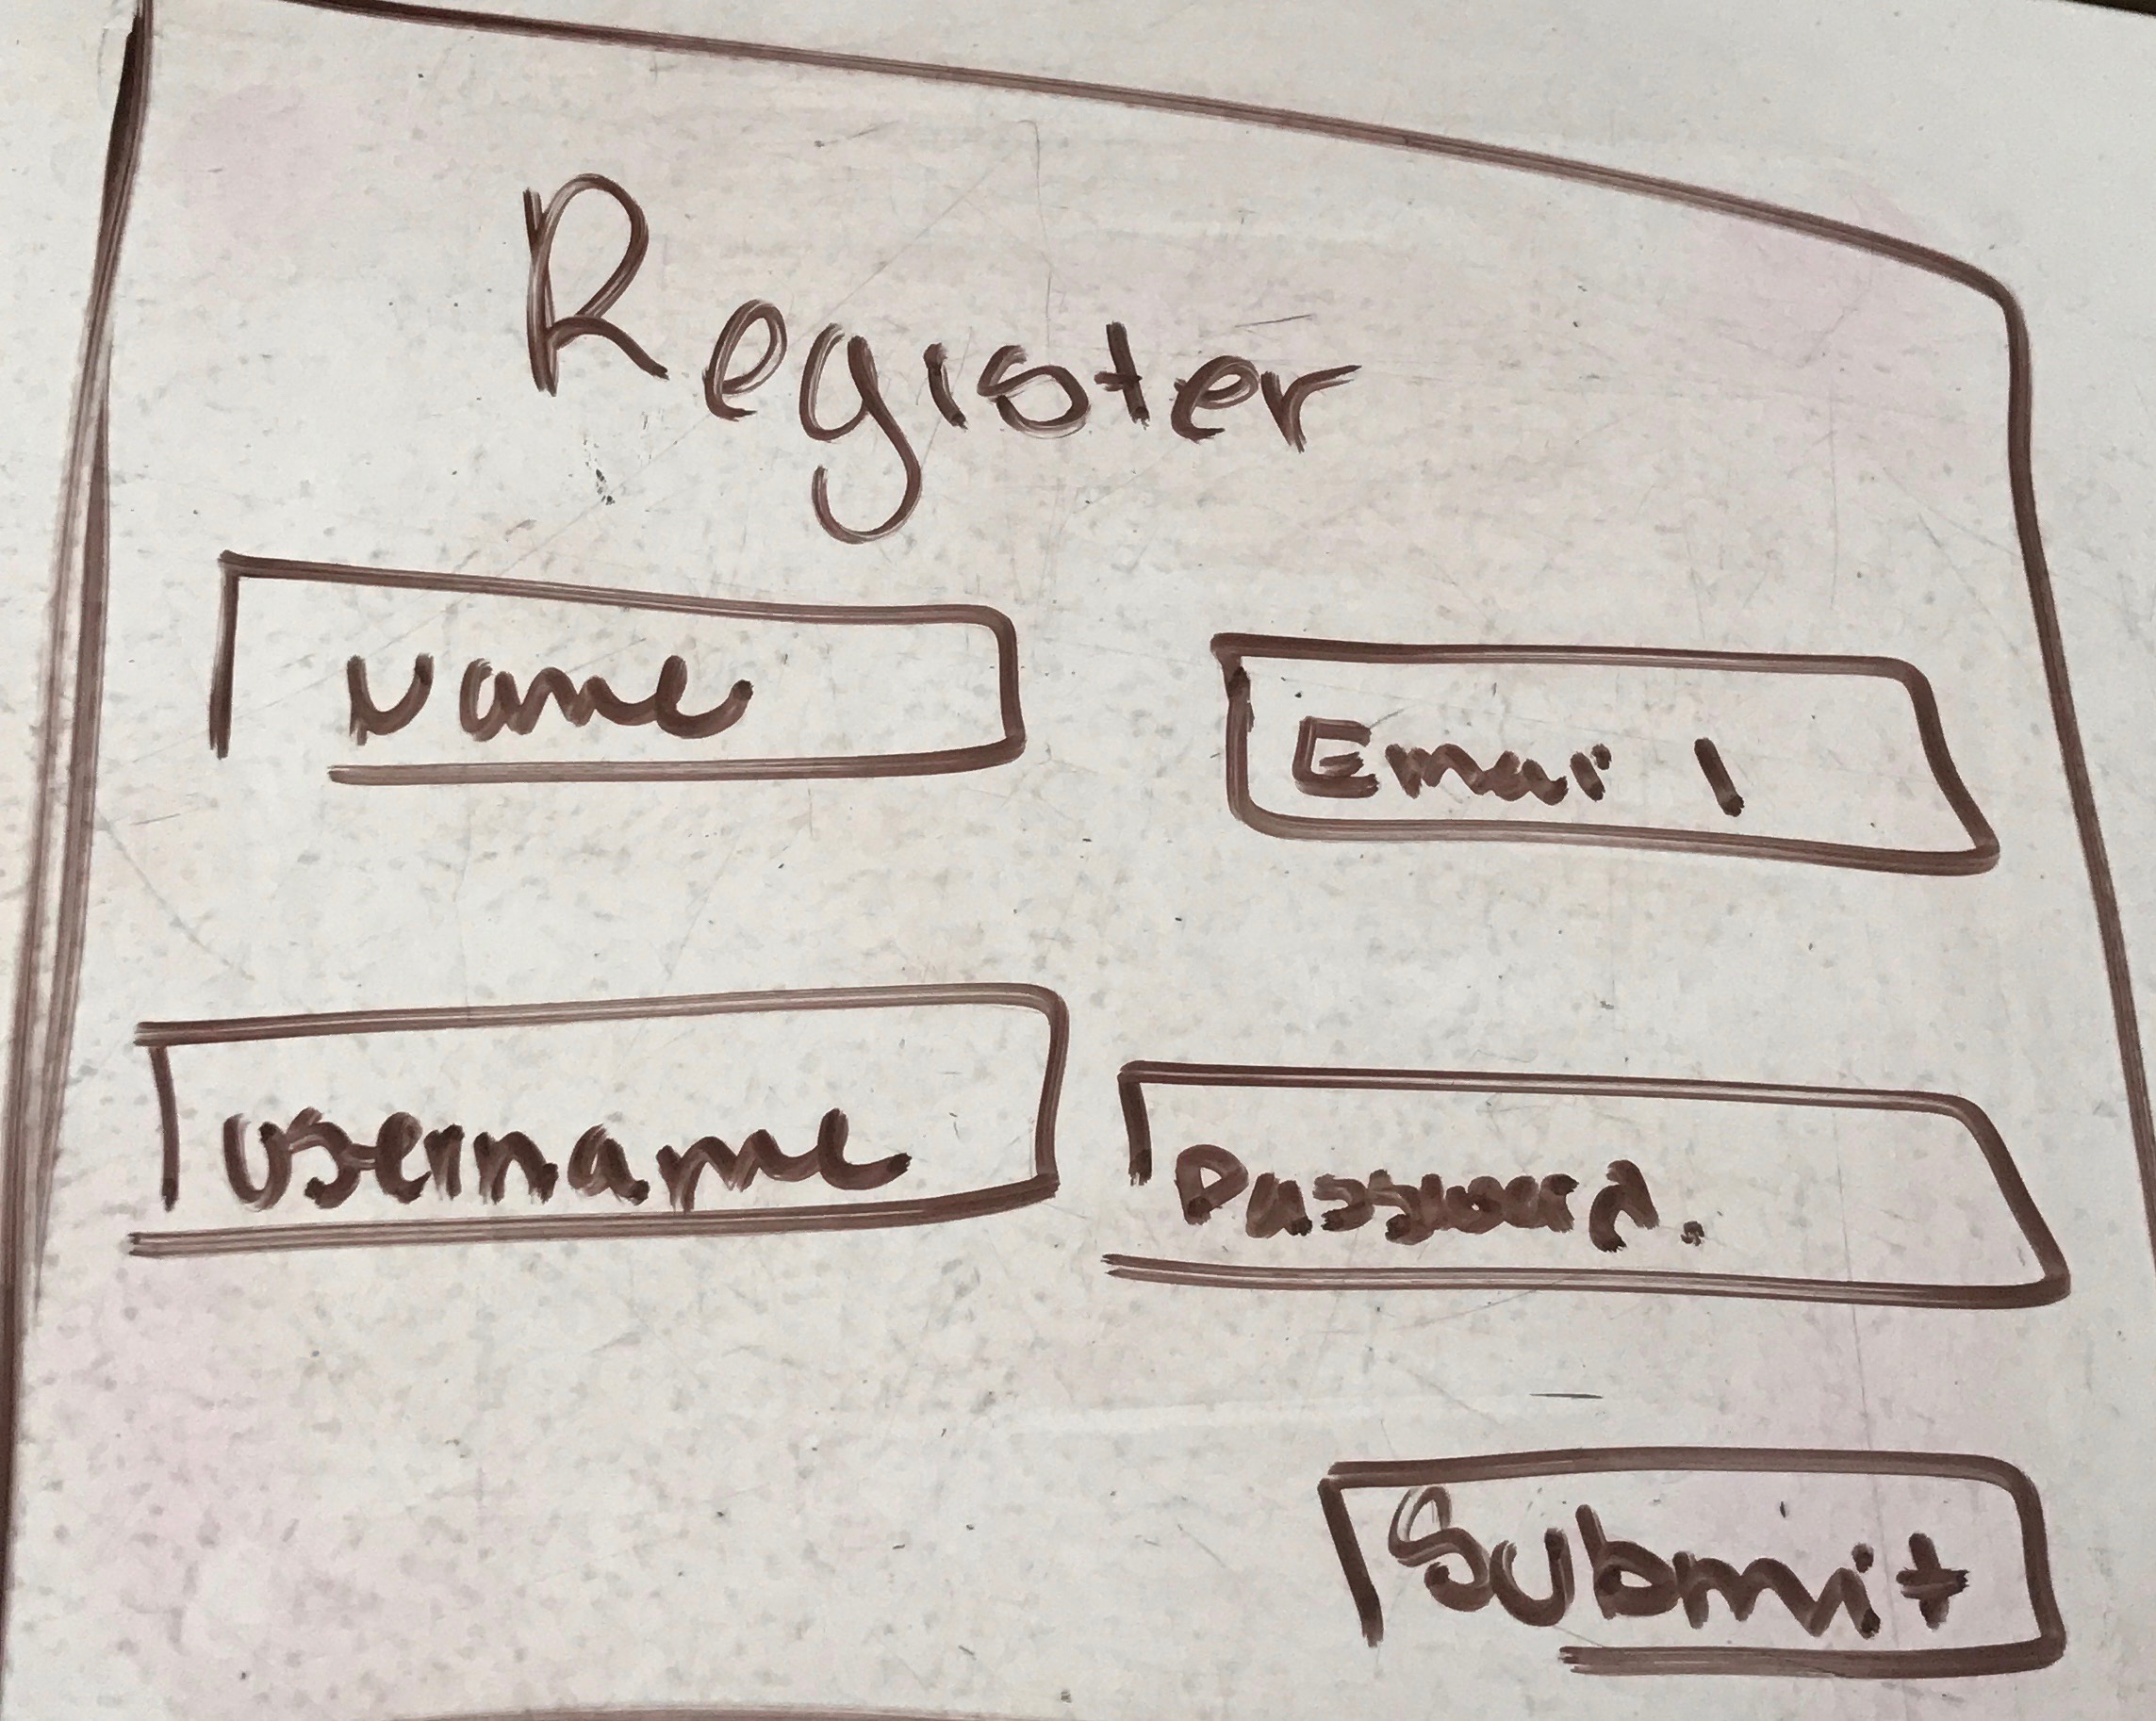 Register
Name
Email
username
Password.
Submit